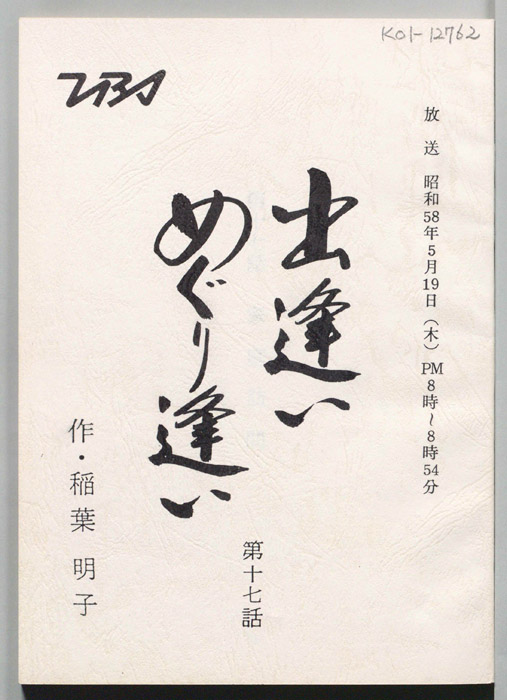 K01-12762
TBS
放送 昭和58年5月19日(木)PM8時~8時54分
出逢い
めぐり逢い
第十七話
作・稲葉 明子